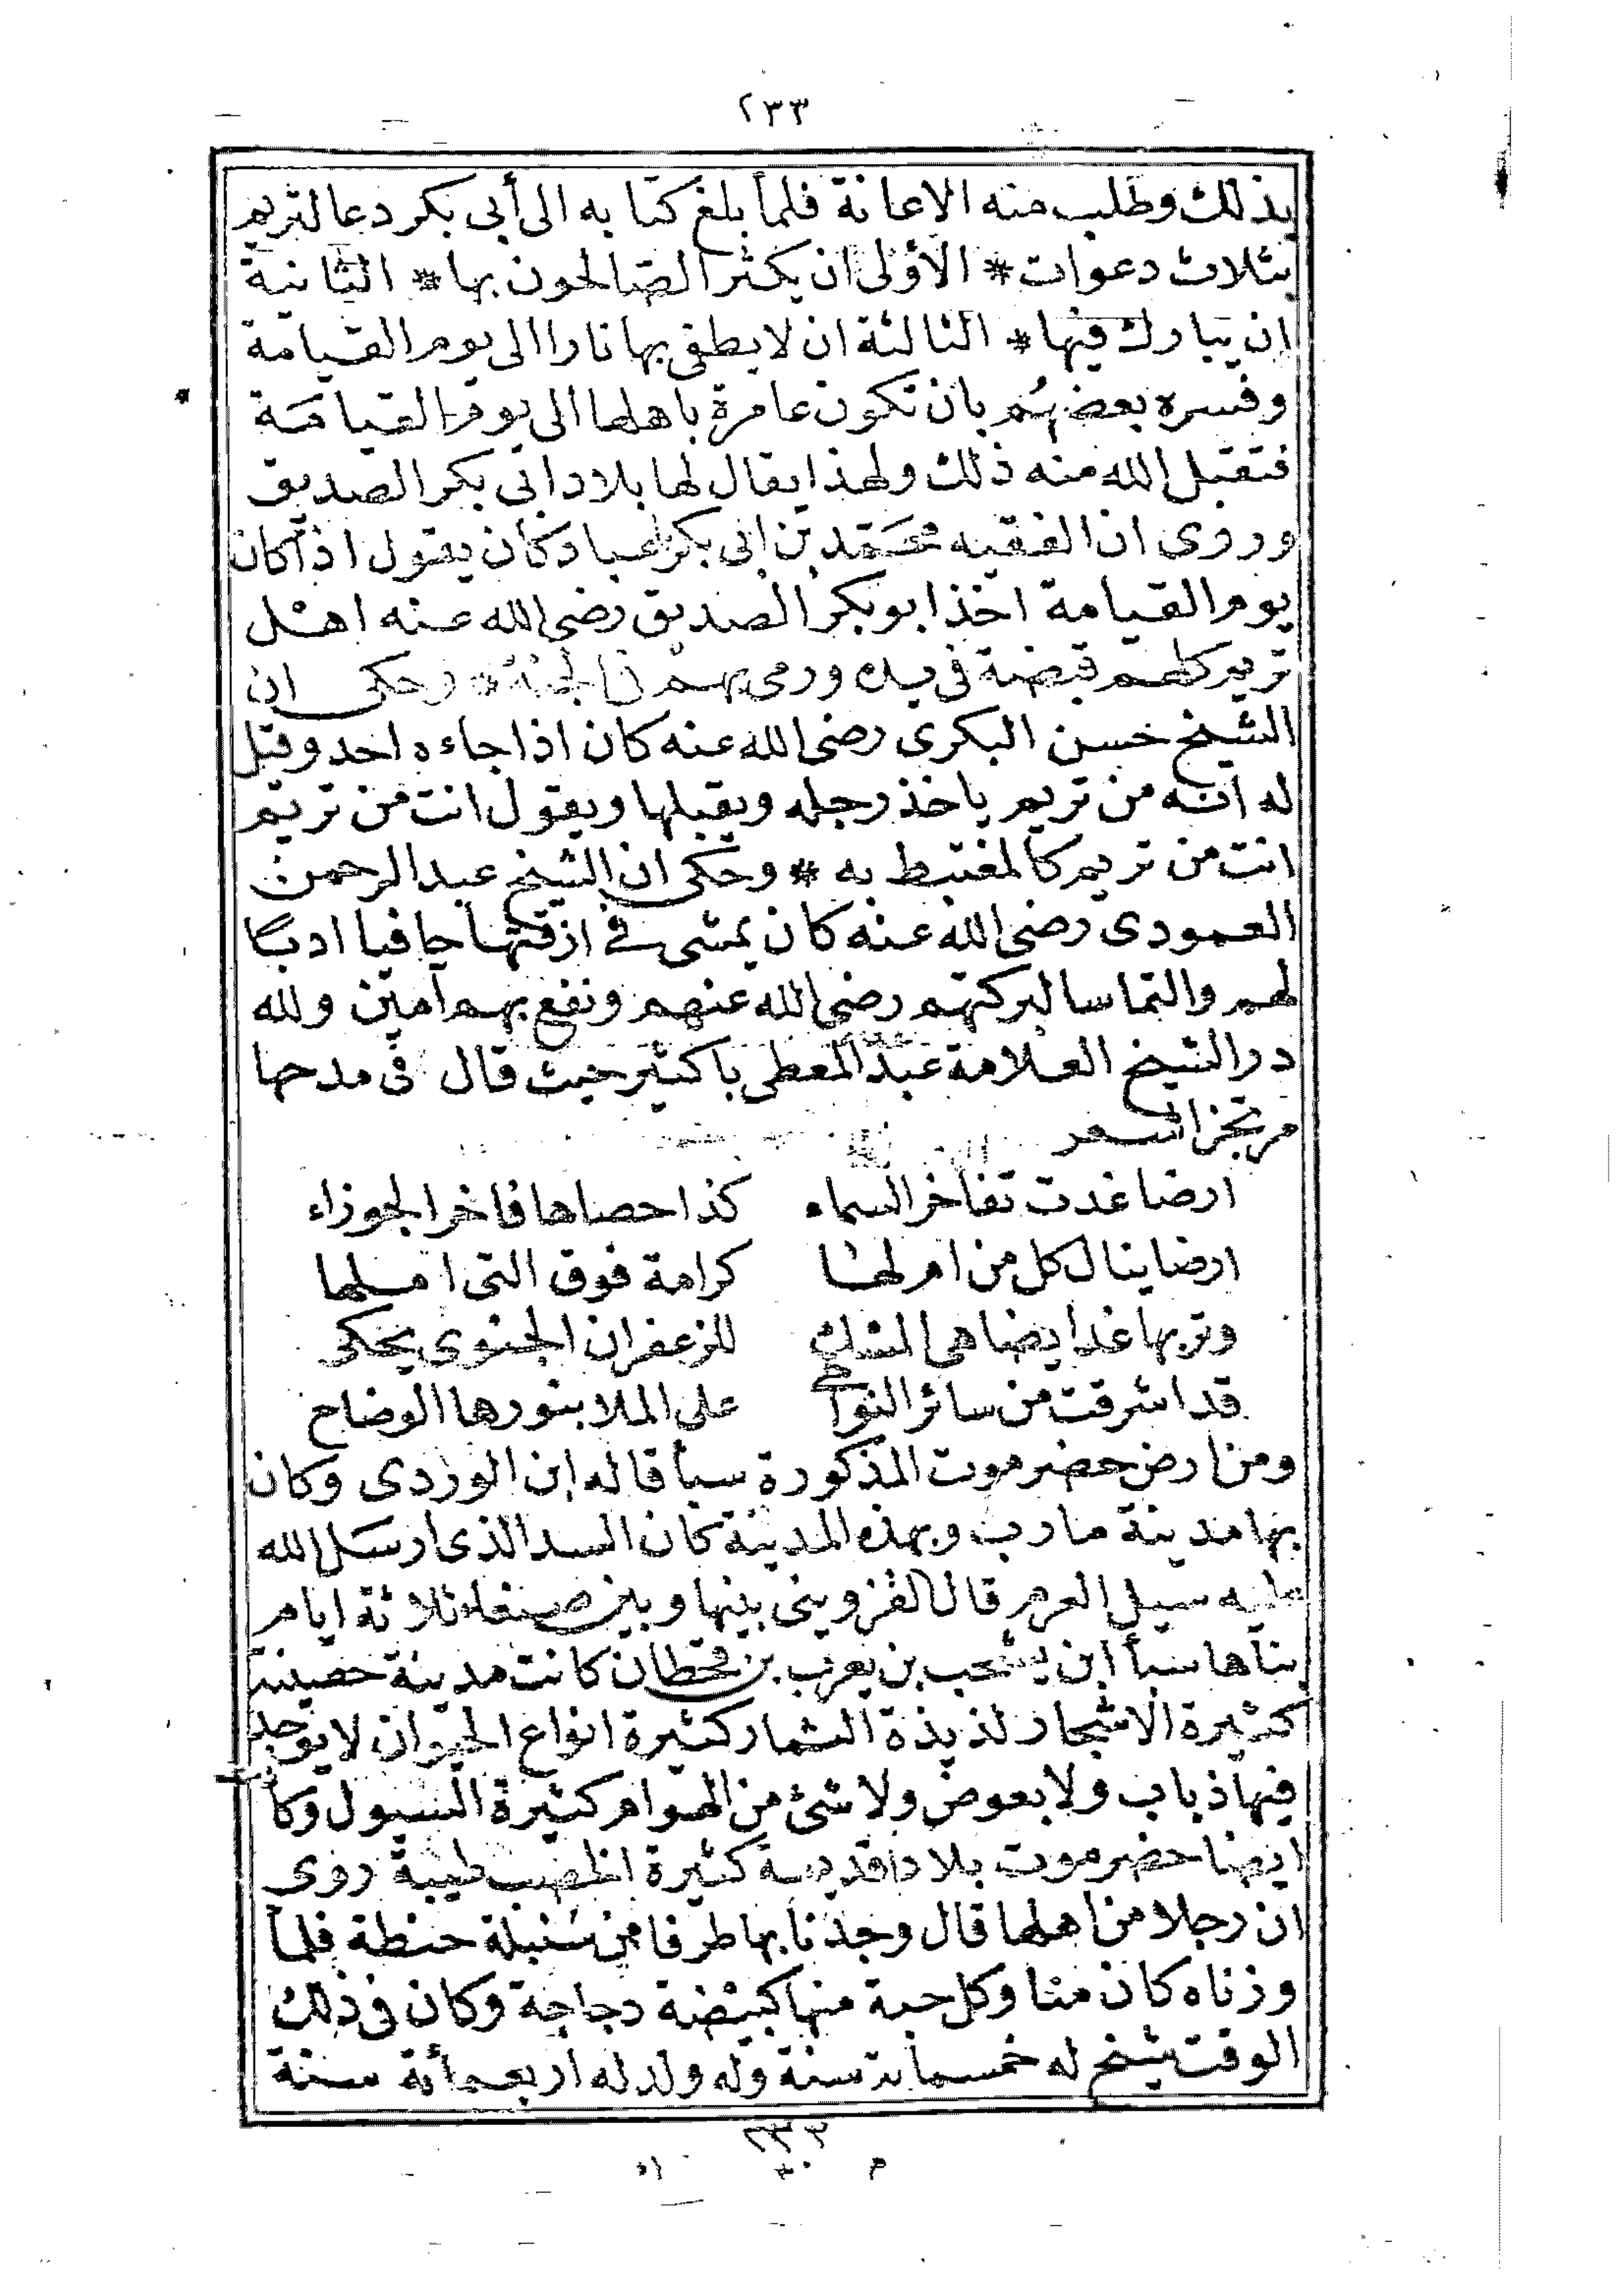 ٢٣٣
بذلك وطلب منه الاعانة فلما بلغ كتابه الى أبى بكر دعا لتريم
بثلاث دعوات * الأولى ان يكثر الصالحون بها * الثانية
ان يبارك فيها * الثالثة ان لا يطفى بها نارا الى يوم القيامة
وفسره بعضهم بان تكون عامرة باهلها الى يوم القيامة
فتقبل الله منه ذلك ولهذا يقال لها بلاد ابى بكر الصديق
وروى ان الفقيه محمد بن ابى بكر عباد كان يقول اذا كان
يوم القيامة اخذ ابو بكر الصديق رضى الله عنه اهل
تريم كلهم قبضة فى يده ورمى بهم فى الجنة * وحكى ان
الشيخ حسن البكرى رضى الله عنه كان اذا جاءه احد وقيل
له انه من تريم ياخذ رجله ويقبلها ويقول انت من تريم
انت من تريم كالمغتبط به * وحكى ان الشيخ عبد الرحمن
العمودى رضى الله عنه كان يمشى فى ازقتها حافيا ادبا
لهم والتماسا لبركتهم رضى الله عنهم ونفع بهم آمين ولله
در الشيخ العلامة عبد المعطى باكثير حيث قال فى مدحها
مرتجزا شعر
ارضا غدت تفاخر السماء كذا حصاها فاخر الجوزاء
ارضا ينال كل من ام لها كرامة فوق التى املها
وتربها غدا يضاهى المسك للزعفران الجنوى يحكى
قد اشرقت من سائر النواحى على الملا بنورها الوضاح
ومن ارض حضرموت المذكورة سبأ قاله ابن الوردى وكان
بها مدينة مارب وبهذه المدينة كان السد الذى ارسل الله
عليه سيل العرم قال القزوينى بينها وبين صنعاء ثلاثة ايام
بناها سبأ ابن يشحب بن يعرب بن قحطان كانت مدينة حصينة
كثيرة الاشجار لذيذة الثمار كثيرة انواع الحيوان لا يوجد
فيها ذباب ولا بعوض ولا شئ من الهوام كثيرة السيول وكا
ايضا حضرموت بلادا قديمة كثيرة الخصب طيبة روى
ان رجلا من اهلها قال وجدنا بها طرفا من سنبلة حنطة فلما
وزناه كان منا وكل حبة منها كبيضة دجاجة وكان فى ذلك
الوقت شيخ له خمسمائة سنة وله ولد له اربعمائة سنة
٢٣٣